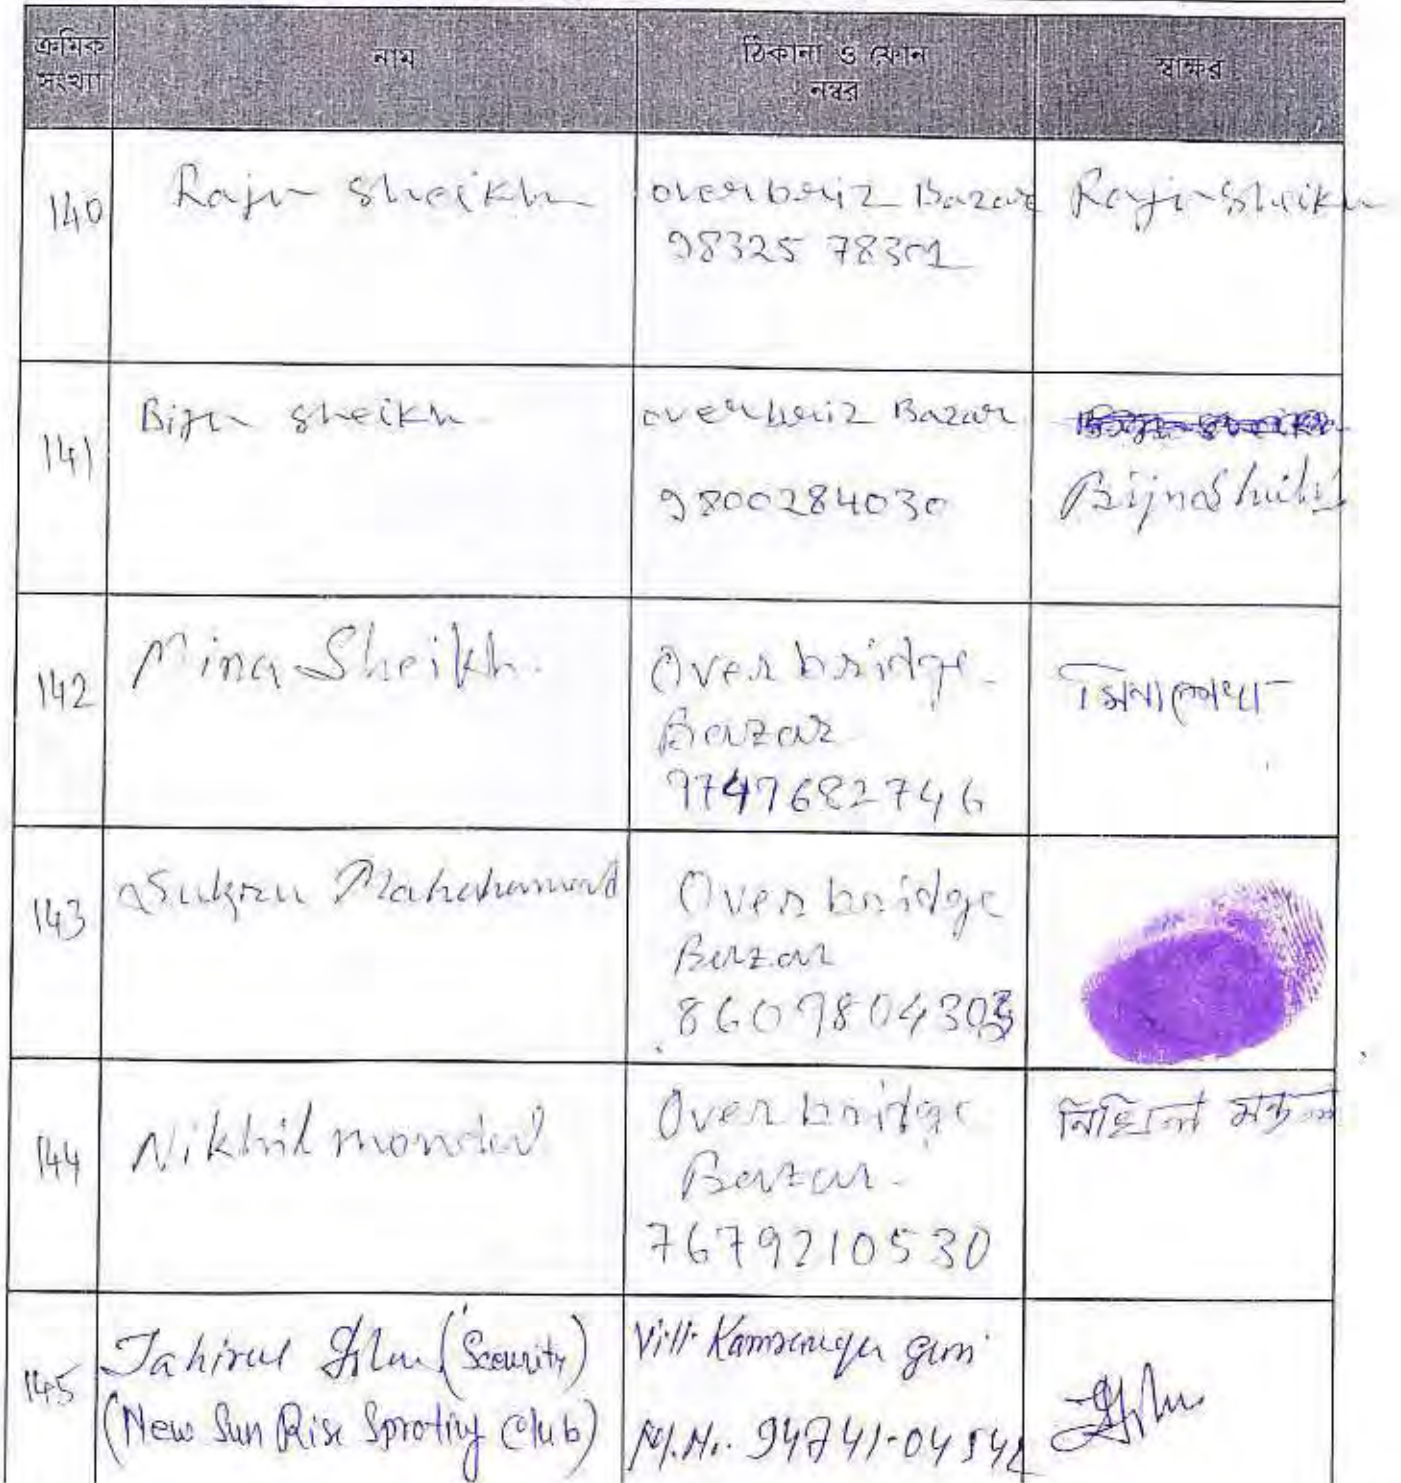 ক্রমিক
সংখ্যা
নাম
ঠিকানা ও ফোন
নম্বর
স্বাক্ষর
140
Raju Sheikh
overbriz Bazar
98325 78301
Raju Sheikh
141
Biju Sheikh
overbriz Bazar
9800284030
Biju Sheikh
142
Mina Sheikh
Over bridge
Bazar
9747682746
মিনা শেখ
143
Sukru Mahahamad
Over bridge
Bazar
8609804303
144
Nikhil mondal
Over bridge
Bazar
7679210530
নিখিল মন্ডল
145
Tahirul Islam (Security)
(New Sun Rise Sproting Club)
Vill-
M.No. 94741-0454